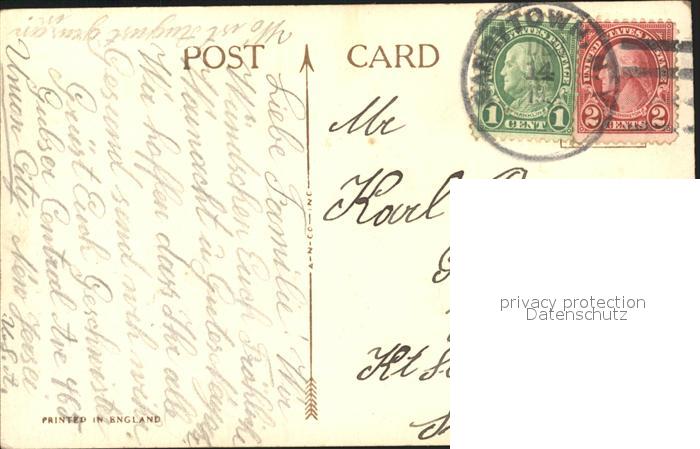 POST CARD
Wo ist August
Liebe Familie! Wir
Wünschen Euch Fröhliche
Weinacht u Gutes Neujahr
Wir hoffen dass Ihr alle
Gesund seid wie wir
Grüst Euch Geschwister
Gubser Central Ave 465
Union City. New Jersei
U.S.A.
Mr
Karl
Kt
UNITED STATES POSTAGE
1 CENT 1
UNITED STATES POSTAGE
2 CENTS 2
14
A-N-CO-INC
PRINTED IN ENGLAND
privacy protection
Datenschutz